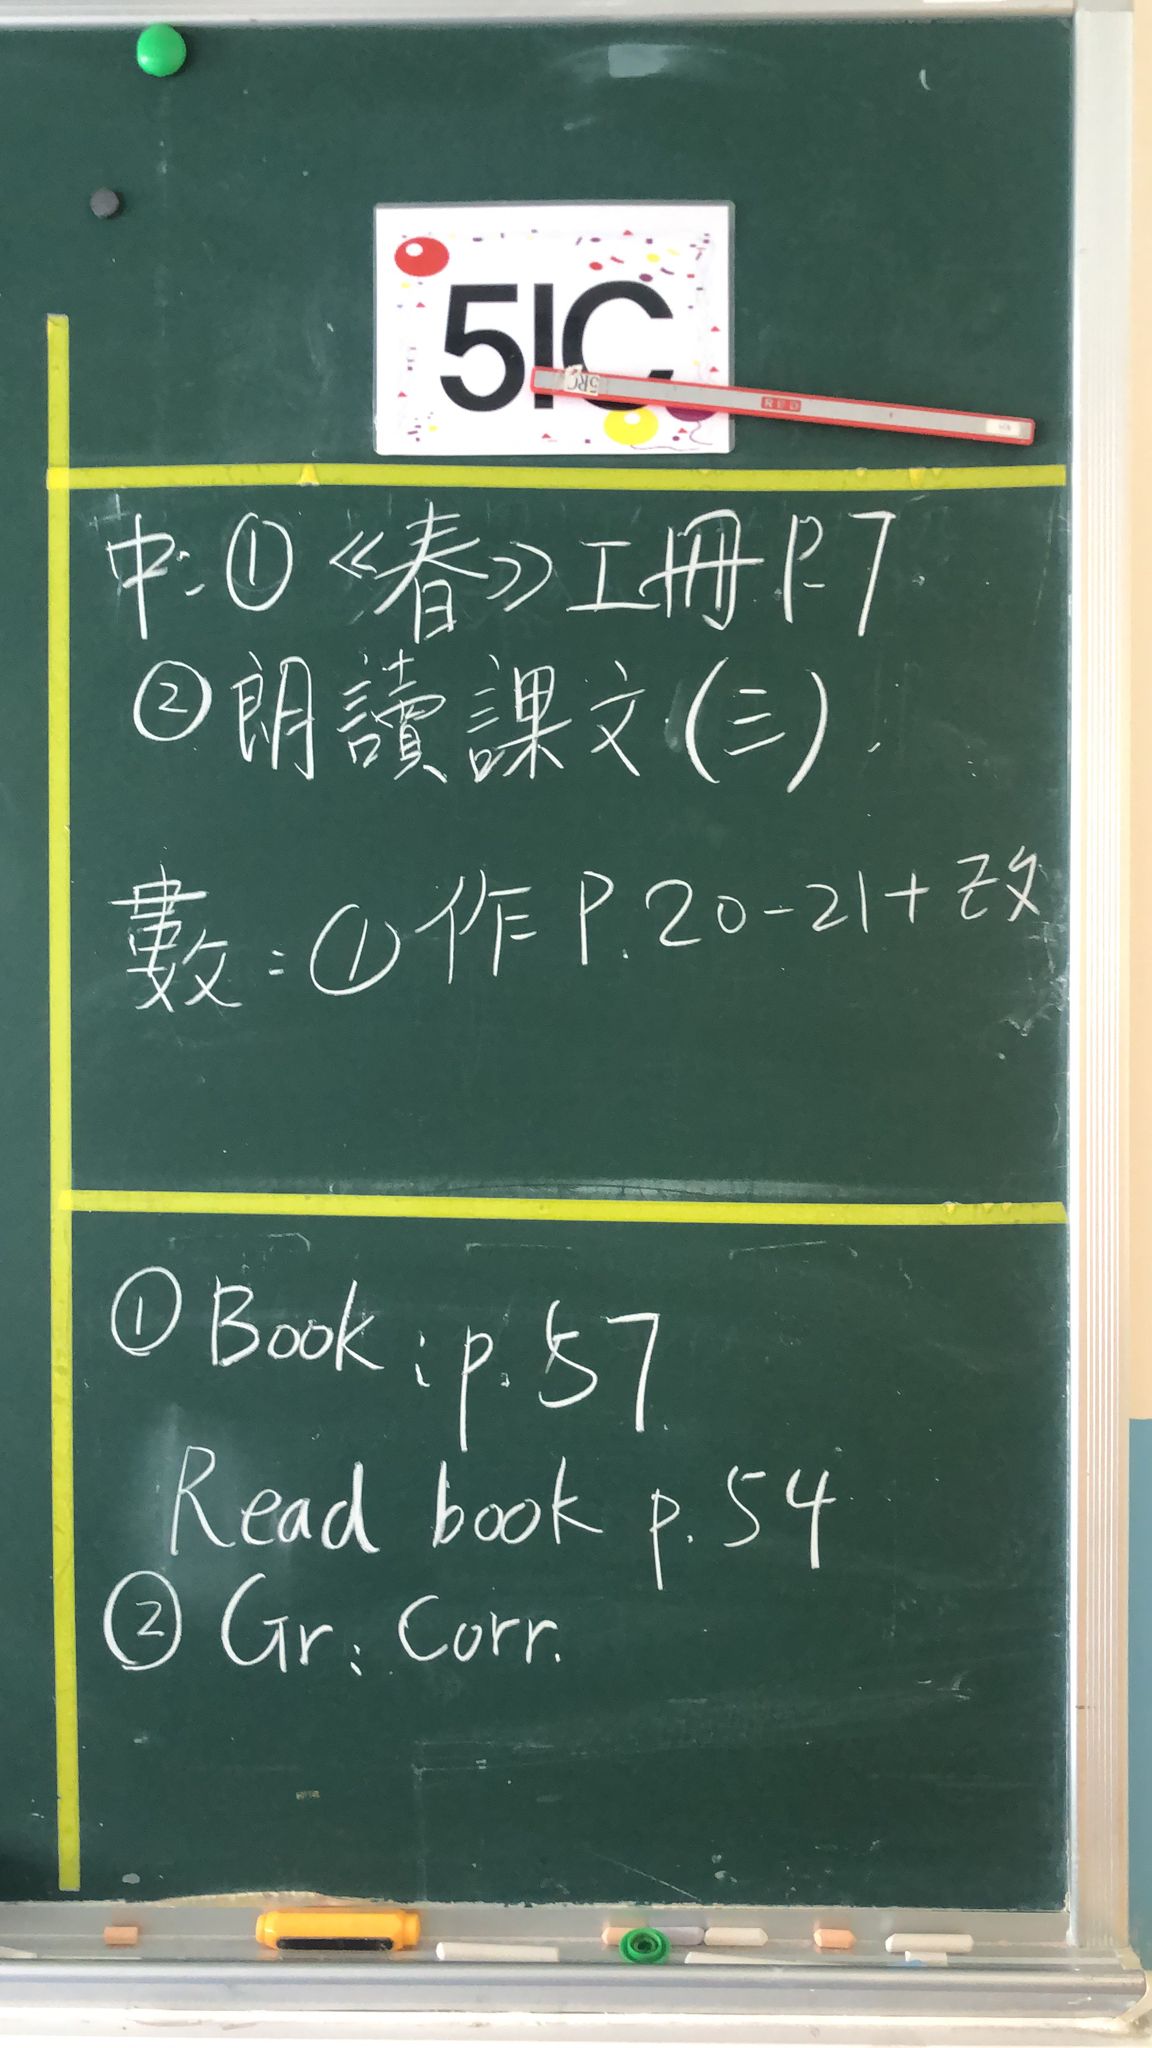 5IC
5RC
RED
中: ① 《春》工冊 P.7
② 朗讀課文(三).
數: ① 作 P.20-21+改
① Book: p.57
Read book p.54
② Gr: Corr.